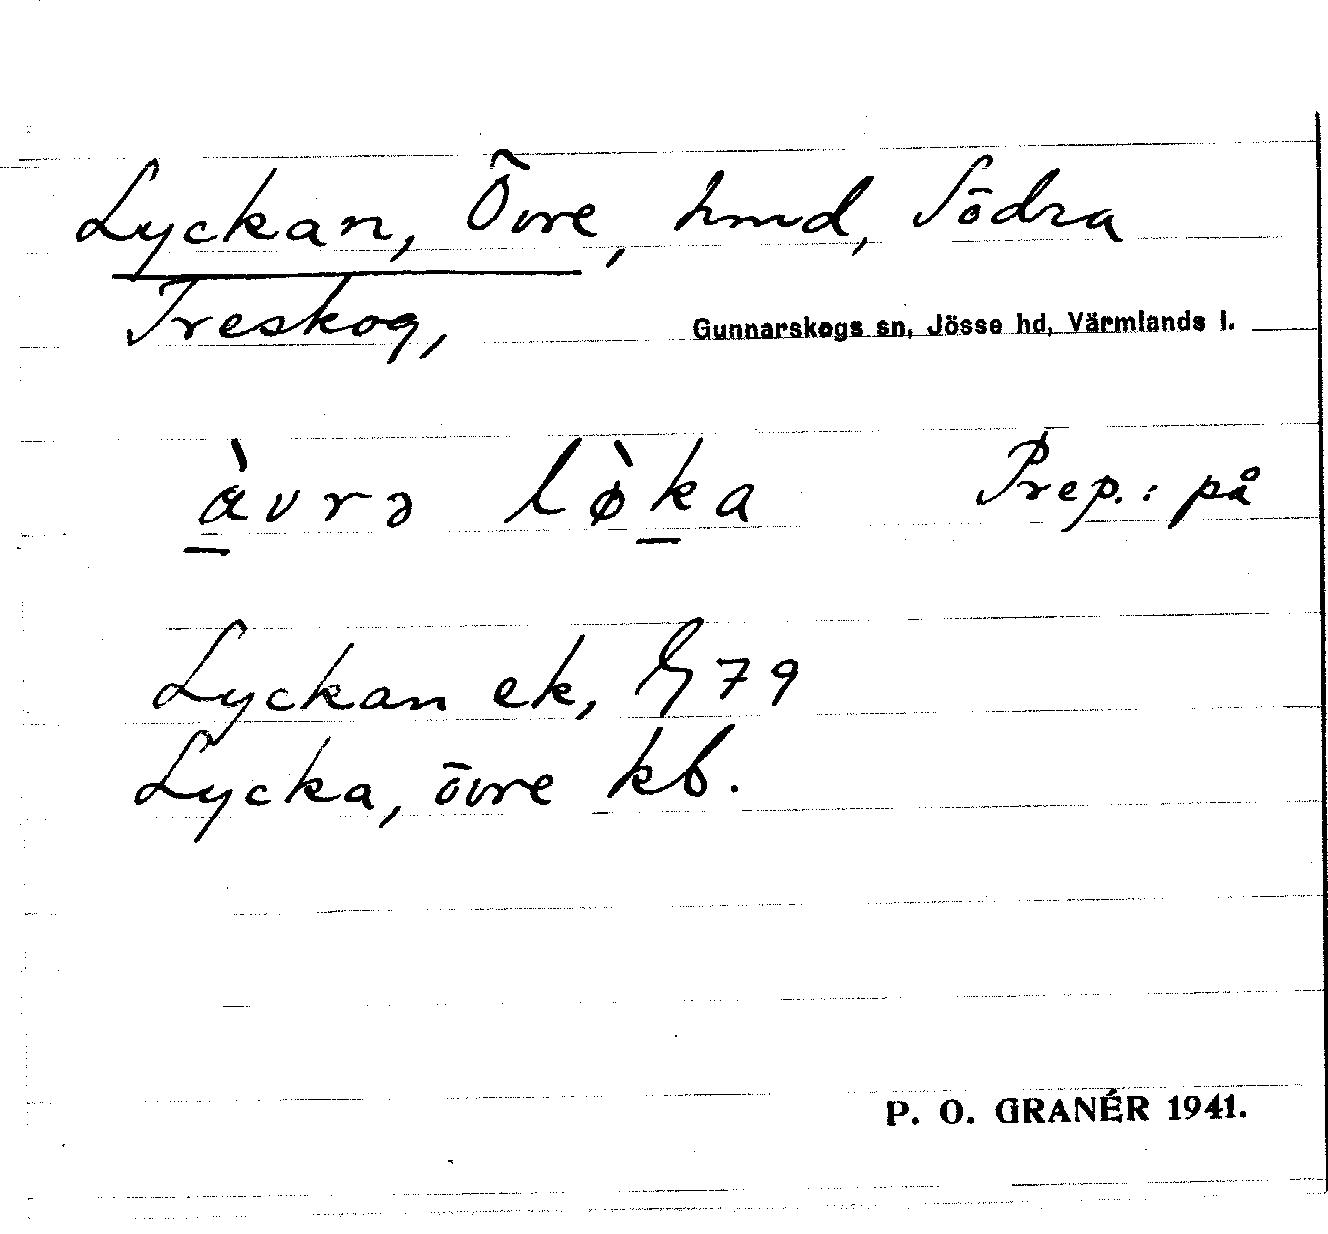 Lyckan, Övre, hmd, Södra
Treskog, Gunnarskogs sn, Jösse hd, Värmlands l.
àvrə lø̀ka Prep.: på
Lyckan ek, G 79
Lycka, övre kb.
P. O. GRANÉR 1941.